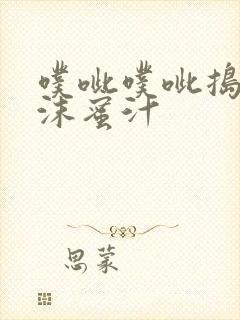 噗呲噗呲捣
沫蜜汁
思蒙